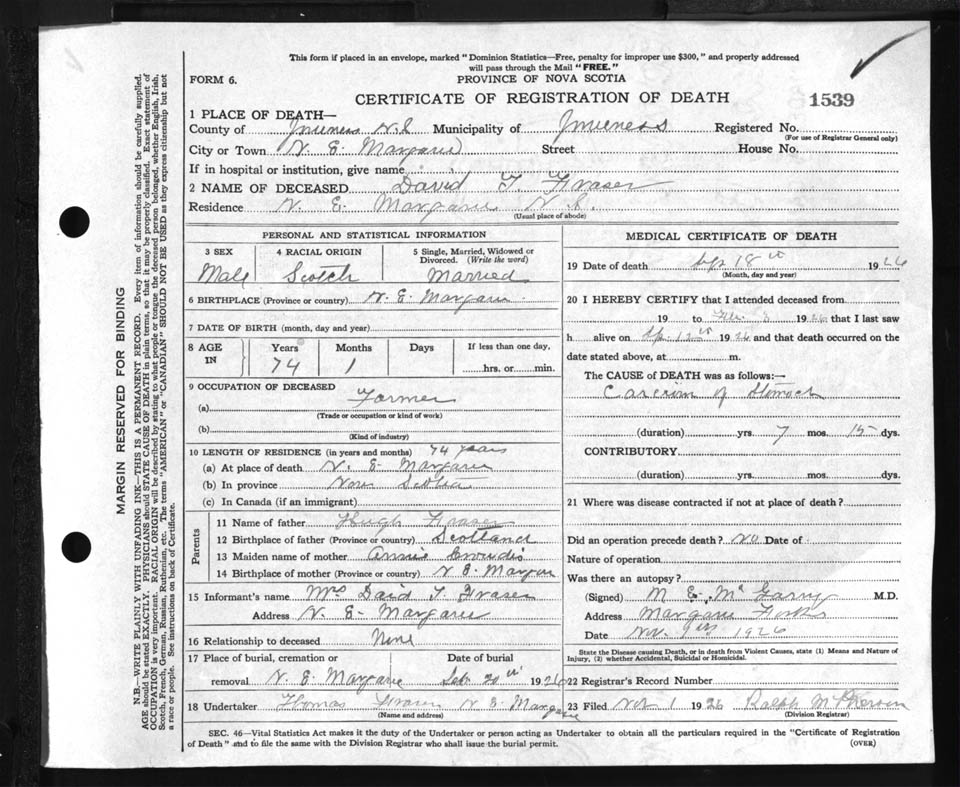 This form if placed in an envelope, marked "Dominion Statistics—Free, penalty for improper use $300," and properly addressed
will pass through the Mail "FREE."
FORM 6. PROVINCE OF NOVA SCOTIA
CERTIFICATE OF REGISTRATION OF DEATH 1539
1 PLACE OF DEATH—
County of Inverness N.S Municipality of Inverness Registered No.
(For use of Registrar General only)
City or Town N. E. Margaree Street House No.
If in hospital or institution, give name
2 NAME OF DECEASED David T. Fraser
Residence N. E. Margaree N.S.
(Usual place of abode)
PERSONAL AND STATISTICAL INFORMATION
3 SEX 4 RACIAL ORIGIN 5 Single, Married, Widowed or
Divorced. (Write the word)
Male Scotch Married
6 BIRTHPLACE (Province or country) N. E. Margaree
7 DATE OF BIRTH (month, day and year)
8 AGE IN Years Months Days If less than one day,
74 1 hrs. or min.
9 OCCUPATION OF DECEASED
(a) Farmer
(Trade or occupation or kind of work)
(b)
(Kind of industry)
10 LENGTH OF RESIDENCE (in years and months) 74 years
(a) At place of death N. E. Margaree
(b) In province Nova Scotia
(c) In Canada (if an immigrant)
Parents
11 Name of father Hugh Fraser
12 Birthplace of father (Province or country) Scotland
13 Maiden name of mother Annie Crowdis
14 Birthplace of mother (Province or country) N E. Margaree
15 Informant's name Mrs David T. Fraser
Address N. E. Margaree
16 Relationship to deceased None
17 Place of burial, cremation or Date of burial
removal N. E. Margaree 20th 1926
18 Undertaker Thomas Fraser N E. Margaree
(Name and address)
MEDICAL CERTIFICATE OF DEATH
19 Date of death 18th 1926
(Month, day and year)
20 I HEREBY CERTIFY that I attended deceased from
19 to 1926 that I last saw
h alive on 12th 1926 and that death occurred on the
date stated above, at m.
The CAUSE of DEATH was as follows:—
of Stomach
(duration) yrs. 7 mos. 15 dys.
CONTRIBUTORY
(duration) yrs. mos. dys.
21 Where was disease contracted if not at place of death?
Did an operation precede death? no Date of
Nature of operation
Was there an autopsy?
(Signed) M. E. McGarry M.D.
Address Margaree Forks
Date 1926
State the Disease causing Death, or in death from Violent Causes, state (1) Means and Nature of
Injury, (2) whether Accidental, Suicidal or Homicidal.
22 Registrar's Record Number
23 Filed 1 1926 Ralph McPherson
(Division Registrar)
SEC. 46—Vital Statistics Act makes it the duty of the Undertaker or person acting as Undertaker to obtain all the particulars required in the "Certificate of Registration
of Death" and to file the same with the Division Registrar who shall issue the burial permit. (OVER)
MARGIN RESERVED FOR BINDING
N.B.—WRITE PLAINLY WITH UNFADING INK—THIS IS A PERMANENT RECORD. Every item of information should be carefully supplied.
AGE should be stated EXACTLY. PHYSICIANS should STATE CAUSE OF DEATH in plain terms, so that it may be properly classified. Exact statement of
OCCUPATION is very important. RACIAL ORIGIN will be described by stating to what people or tongue the deceased person belonged, whether English, Irish,
Scotch, French, German, Russian, Ruthenian, etc. The terms "AMERICAN" or "CANADIAN" SHOULD NOT BE USED as they express citizenship but not
a race or people. See instructions on back of Certificate.